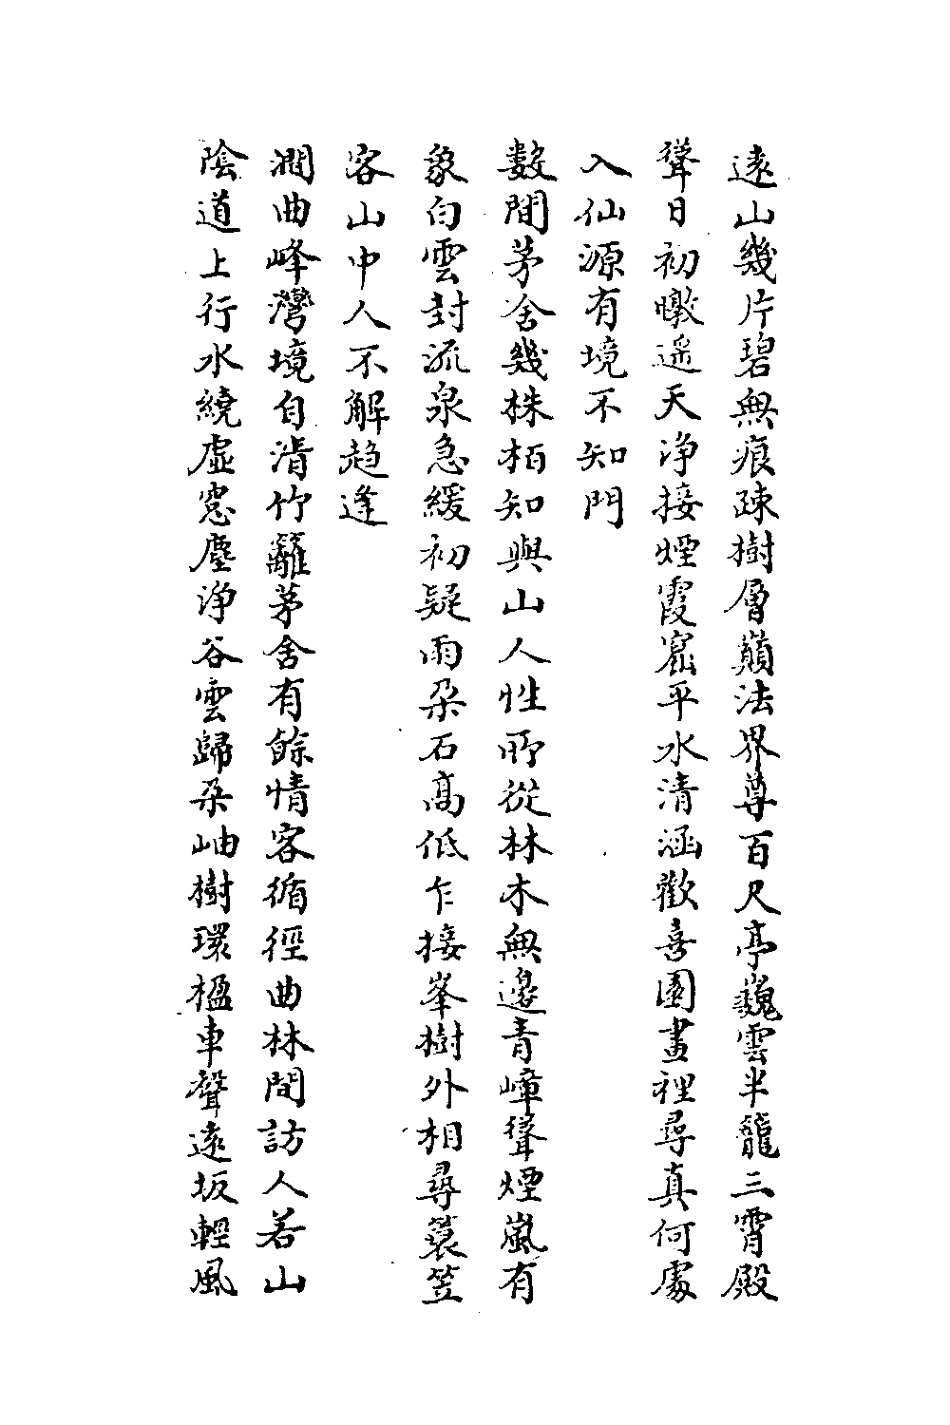 遠山幾片碧無痕疎樹層巔法界尊百尺亭巍雲半籠三霄殿
聳日初暾遥天淨接煙霞窟平水清涵歡喜園畫裡尋真何處
入仙源有境不知門
數間茅舍幾株栢知與山人性所從林木無邊青嶂聳煙嵐有
象白雲封流泉急緩初疑雨朶石高低乍接峯樹外相尋簑笠
客山中人不解趋逢
澗曲峰灣境自清竹籬茅舍有餘情客循徑曲林間訪人若山
陰道上行水繞虛窓塵淨谷雲歸朶岫樹環楹車聲遠坂輕風